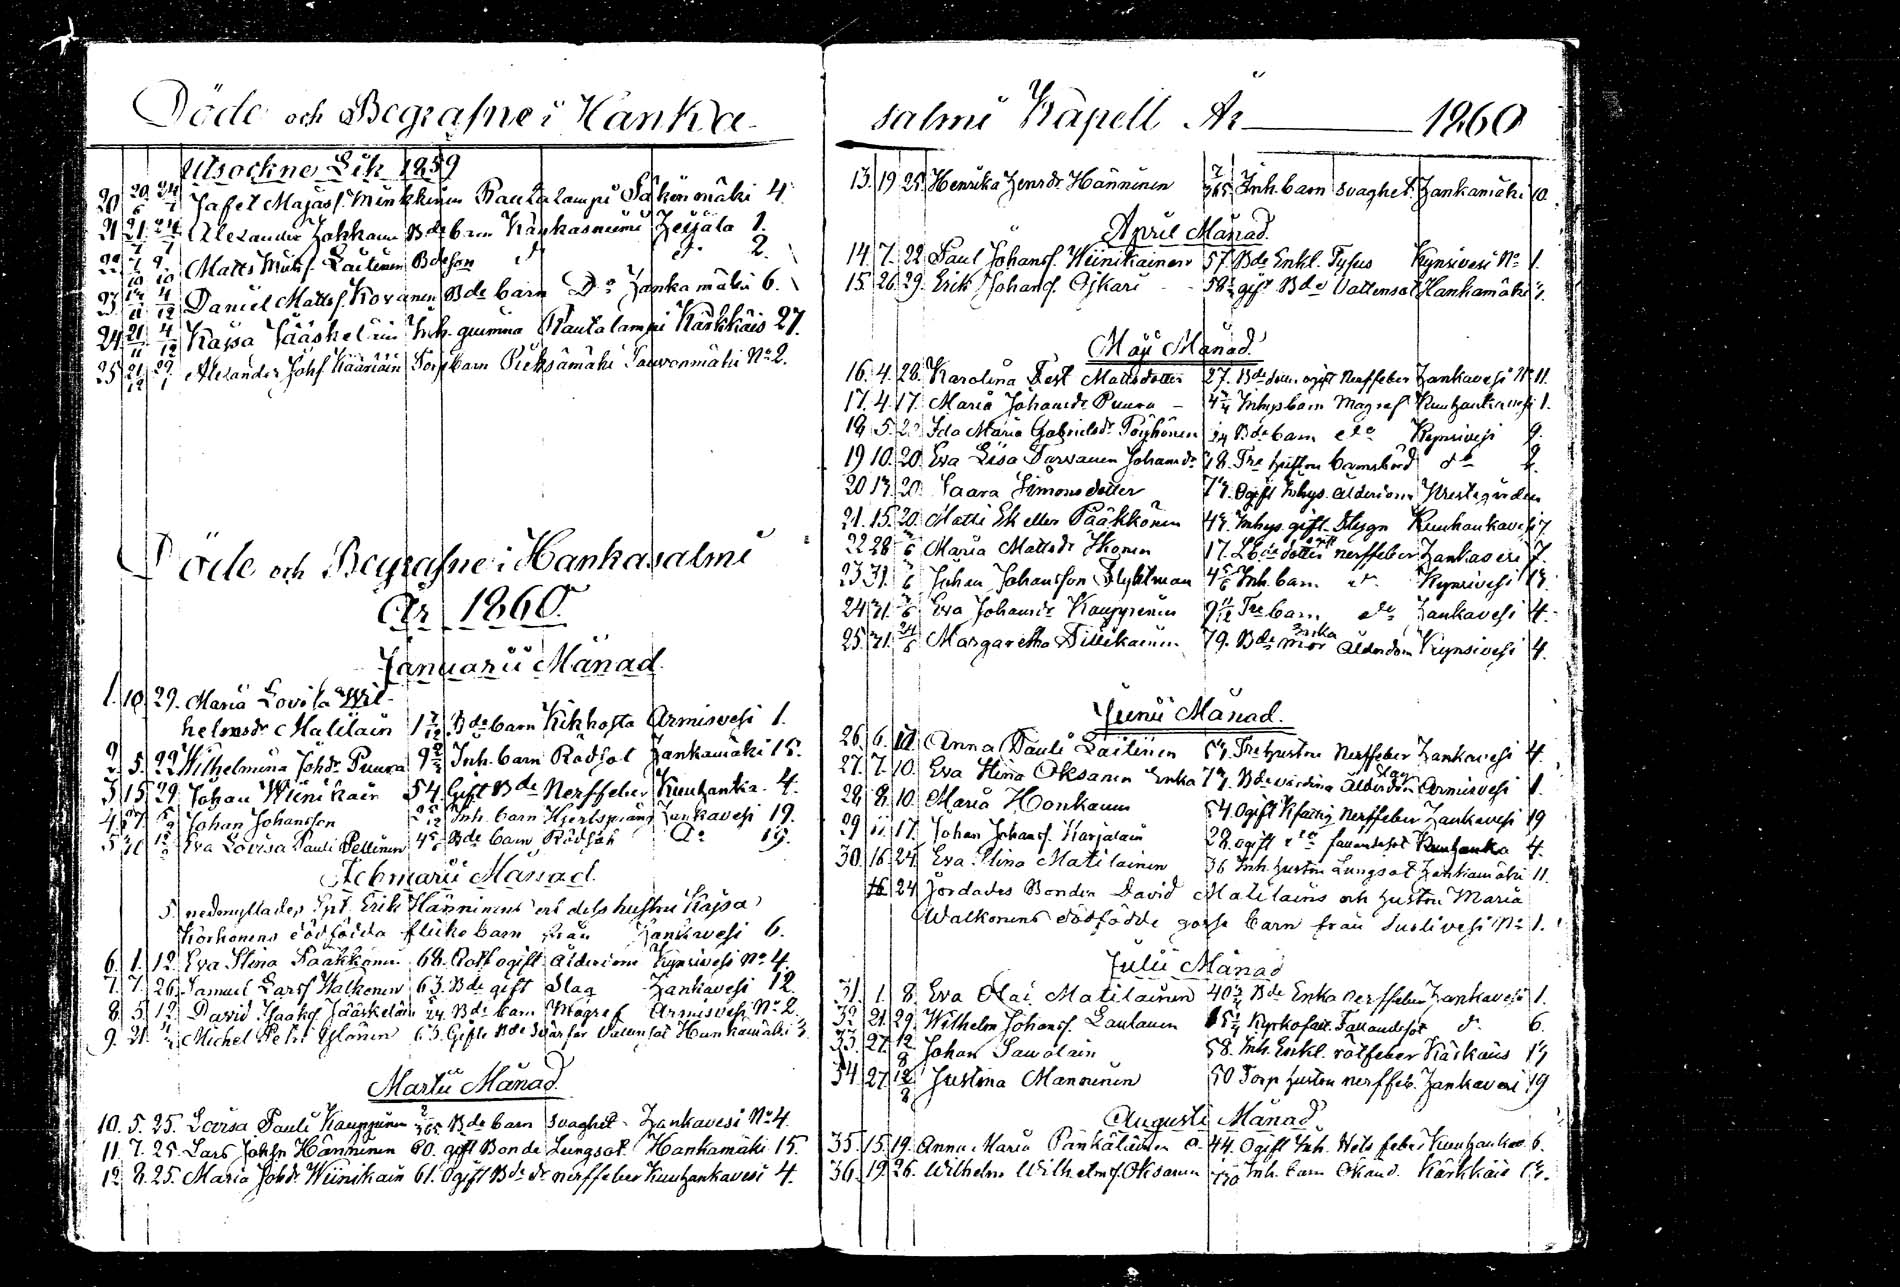 Döde och Begrafne i Hanka
Utsockne Lik 1859
20 20/6 24/7 Jafet Majasf. Minkkinen Rautalampi Säkinmäki 4.
21 21/7 24/7 Alexander Jokkanen Bde barn Kankasniemi 1.
22 Matts Laitinen Bde son do do 2.
23 Daniel Mattsf. Kovanen Bde barn Do Zankamäki 6.
24 21/11 4/12 Kajsa Jääskeläin Inh. gumma Rautalampi Kärkkäis 27.
25 21/12 Alexander Johsf Kääriäin Torp barn Pieksämäki No 2.
Döde och Begrafne i Hankasalmi
År 1860.
Januarii Månad.
1. 10. 29. Maria Lovisa Wil-
helmsdr Matilain 1 7/12 Bde barn Kikhosta Armisvesi 1.
2. 5. 29 Wilhelmina Johdr Puura Inh. barn Rödsot Zankamäki 15.
3 15 29. Johan Wiinikain 54 Gift Bde Nerffeber Kuuhanka 4.
4 Johan Johansson Inh. barn Hjertsprång Zankavesi 19.
5 Eva Lovisa Pauli Pellinen Bde barn Rödsot Do 19.
Februarii Månad.
5 Spt. Erik Hänninens och dess hustru Kajsa
Korhonens dödfödda flickebarn från Zankavesi 6.
6. 1. 12. Eva Stina Pääkkönen 68. ogift ålderdom Kynsivesi No 4.
7. 7. 26. Samuel Larsf Walkonen 63. Bde gift Slag Zankavesi 12.
8. 5. 12. David Isaaksf. Jääskeläin Bde barn Magref Armisvesi No 2.
9. 21. Michel Petri Ylönen 63. Gifte Bde Svärfar Vattensot Hankamäki 3.
Martii Månad.
10. 5. 25. Lovisa Pauli Kauppinen 2/365 Bde barn svaghet Zankavesi No 4.
11. 7. 25. Lars Johsn Hänninen 60. gift Bonde Lungsot Hankamäki 15.
12 8. 25. Maria Johdr Wiinikain 61. Ogift Bde dr nerffeber Kuuhankavesi 4.
salmi Kapell År 1860
13. 19 25 Henrika Henrdr Hänninen 2/365 Inh. barn svaghet Zankamäki 10.
April Månad.
14. 7. 22 Paul Johansf. Wiinikainen 57. Bde Enkl. Tyfus Kynsivesi No 1.
15. 26 29. Erik Johansf. Ojkari 58 gift Bde Vattensot Hankamäki 3.
Maji Månad.
16. 4. 28. Karolina Fest Mattsdotter 27. Bde dotter ogift Nerffeber Zankavesi No 11.
17. 4. 17. Maria Johansdr Puura Inhys barn Magref Kuuhankavesi 1.
18 5. Ida Maria Gabrielsdr Pöyhönen Bde barn do Kynsivesi 9.
19 10. 20. Eva Lisa Tarvainen Johansdr Tre hustru barnsbörd do 2.
20 17. 20. Saara Simonsdotter Ogift Inhys. ålderdom Prestgården
21. 15. 20. Matti Ek eller Pääkkönen Inhys. gift Stygn Kuuhankavesi 7
22 28 Maria Mattsdr Ikonen 17. Lbde dotter ogift nerffeber Zankavesi 7.
23 31. Johan Johansson Flyktman Inh. barn do Kynsivesi
24 31. Eva Johansdr Kauppinen Tre barn do Zankavesi 4.
25. 31. Margaretha Tiilikainen 79. Bde Enka mor Ålderdom Kynsivesi 4.
Junii Månad.
26. 6. 10 Anna Pauli Laitinen Tre hustru Nerffeber Zankavesi 4.
27. 7. 10. Eva Stina Oksanen Enka Bde värdina Ålderdom Slag Armisvesi 1.
28 8. 10. Maria Honkanen 54 Ogift Kfattig Nerffeber Zankavesi 19
29 11 17. Johan Johansf. Karjalain 28. ogift do fallandesot Kuuhanka 4.
30. 16 24. Eva Stina Matilainen 36 Inh. hustru Lungsot Zankamäki 11.
16 24 Jordades Bonden David Matilains och hustru Maria
Walkonens dödfödde gosse barn från Suolivesi No 1.
Julii Månad
31. 1. 8. Eva Olai Matilainen Bde Enka nerffeber Zankavesi 1.
32 21. 29. Wilhelm Johansf. Laulanen Kyrkofatt. Fallandesot do 6.
33. 27. 12/8 Johan Savolain 58. Inh. Enkl. rötfeber Kärkäis
34 27 12/8 Justina Manninen 50 Torp hustru nerffeb. Zankavesi 19
Augusti Månad
35. 15. 19. Anna Maria Pänkäläinen 44. Ogift Inh. Het feber Kuuhanka 6.
36. 19 26. Wilhelm Wilhelmsf. Oksanen Inh. barn Okänd. Kärkkäis